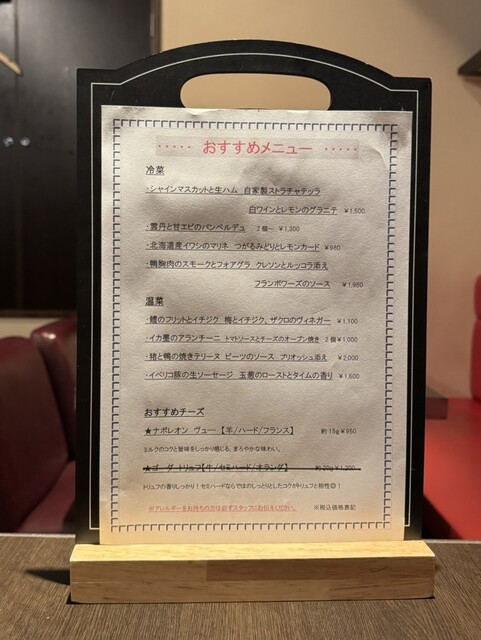 ····· おすすめメニュー ·····
冷菜
・シャインマスカットと生ハム 自家製ストラチャテッラ
白ワインとレモンのグラニテ ¥1,500
・雲丹と甘エビのパンペルデュ 2個~ ¥1,300
・北海道産イワシのマリネ つがるみどりとレモンカード ¥980
・鴨胸肉のスモークとフォアグラ クレソンとルッコラ添え
フランボワーズのソース ¥1,980
温菜
・鱧のフリットとイチジク 梅とイチジク、ザクロのヴィネガー ¥1,100
・イカ墨のアランチーニ トマトソースとチーズのオーブン焼き 2個¥1,000
・猪と鴨の焼きテリーヌ ビーツのソース ブリオッシュ添え ¥2,000
・イベリコ豚の生ソーセージ 玉葱のローストとタイムの香り ¥1,600
おすすめチーズ
★ナポレオン ヴュー【羊/ハード/フランス】 約15g¥950
ミルクのコクと旨味をしっかり感じる、まろやかな味わい。
★ゴーダ トリュフ【牛/セミハード/オランダ】 約20g¥1,200
トリュフの香りしっかり!セミハードならではのしっとりとしたコクがトリュフと相性◎!
※アレルギーをお持ちの方は必ずスタッフにお伝えください。 ※税込価格表記